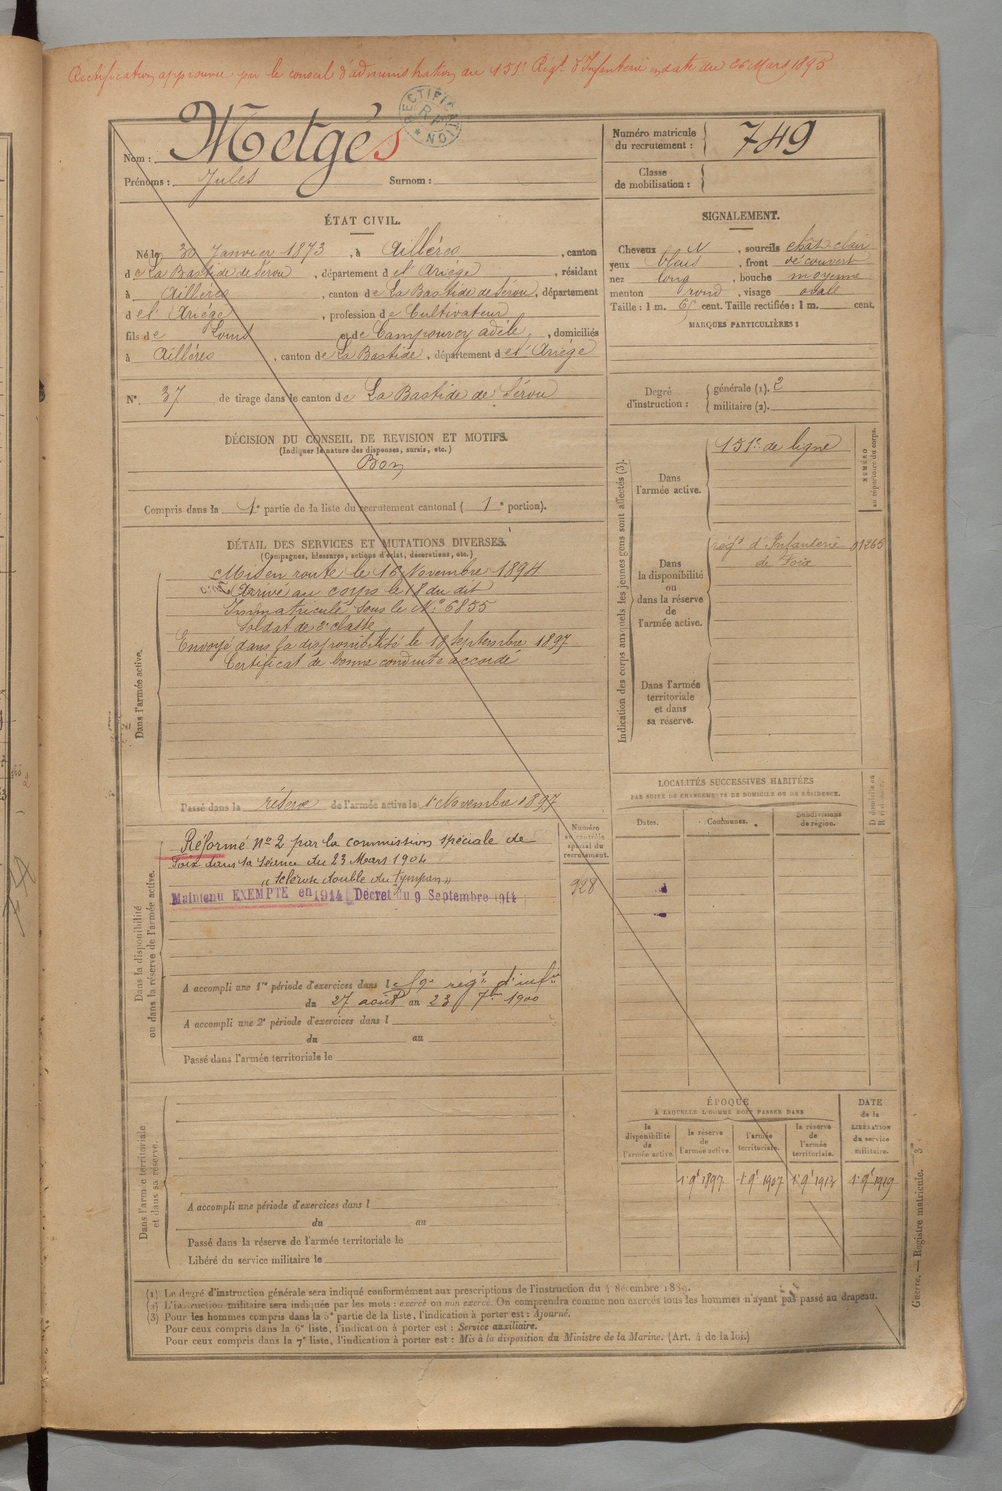 Rectification approuvée par le conseil d'administration du 151e Régt d'Infanterie en date du 26 Mars 1895
RECTIFICATION
Nom : Metgés
Numéro matricule du recrutement : 749
Prénoms : Jules Surnom :
Classe de mobilisation :
ÉTAT CIVIL.
Né le 30 Janvier 1873, à Aillères, canton
de La Bastide de Sérou, département de l'Ariège, résidant
à Aillères, canton de La Bastide de Sérou, département
de l'Ariège, profession de Cultivateur
fils de Louis et de Campourcy Adèle, domiciliés
à Aillères, canton de La Bastide, département de l'Ariège
N° 37 de tirage dans le canton de La Bastide de Sérou
SIGNALEMENT.
Cheveux N, sourcils chât clair
yeux bleus, front découvert
nez long, bouche moyenne
menton rond, visage ovale
Taille : 1 m. 65 cent. Taille rectifiée : 1 m. cent.
MARQUES PARTICULIÈRES :
Degré d'instruction : générale (1). 2
militaire (2).
DÉCISION DU CONSEIL DE REVISION ET MOTIFS.
(Indiquer la nature des dispenses, sursis, etc.)
Bon
Compris dans la 1e partie de la liste du recrutement cantonal ( 1e portion).
DÉTAIL DES SERVICES ET MUTATIONS DIVERSES.
(Campagnes, blessures, actions d'éclat, décorations, etc.)
Dans l'armée active.
Mis en route le 16 Novembre 1894
Arrivé au corps le 18 du dit
Immatriculé sous le N° 6855
Soldat de 2e classe
Envoyé dans la disponibilité le 18 Septembre 1897
Certificat de bonne conduite accordé
Passé dans la réserve de l'armée active le 1er Novembre 1897
Indication des corps auxquels les jeunes gens sont affectés (3).
NUMÉRO au répertoire du corps.
Dans l'armée active.
151e de ligne
Dans la disponibilité ou dans la réserve de l'armée active.
régt d'Infanterie 01265
de Foix
Dans l'armée territoriale et dans sa réserve.
LOCALITÉS SUCCESSIVES HABITÉES
PAR SUITE DE CHANGEMENTS DE DOMICILE OU DE RÉSIDENCE.
Dates. Communes. Subdivisions de région.
Dans la disponibilité ou dans la réserve de l'armée active.
Numéro au contrôle spécial du recrutement.
928
Réformé N° 2 par la commission spéciale de
Foix dans sa séance du 23 Mars 1904
"sclérose double du tympan"
Maintenu EXEMPTE en 1914 Décret du 9 Septembre 1914
A accompli une 1re période d'exercices dans le 59e régt d'infie
du 27 août au 23 7bre 1900
A accompli une 2e période d'exercices dans l
du au
Passé dans l'armée territoriale le
Dans l'armée territoriale et dans sa réserve.
A accompli une période d'exercices dans l
du au
Passé dans la réserve de l'armée territoriale le
Libéré du service militaire le
ÉPOQUE
À LAQUELLE L'HOMME DOIT PASSER DANS
DATE de la LIBÉRATION du service militaire.
la disponibilité de l'armée active. la réserve de l'armée active. l'armée territoriale. la réserve de l'armée territoriale.
1er 9bre 1897 1er 9bre 1907 1er 9bre 1913 1er 9bre 1919
(1) Le degré d'instruction générale sera indiqué conformément aux prescriptions de l'instruction du 4 décembre 1889.
(2) L'instruction militaire sera indiquée par les mots : exercé ou non exercé. On comprendra comme non exercés tous les hommes n'ayant pas passé au drapeau.
(3) Pour les hommes compris dans la 5e partie de la liste, l'indication à porter est : Ajourné.
Pour ceux compris dans la 6e liste, l'indication à porter est : Service auxiliaire.
Pour ceux compris dans la 7e liste, l'indication à porter est : Mis à la disposition du Ministre de la Marine. (Art. 4 de la loi.)
Guerre. — Registre matricule.